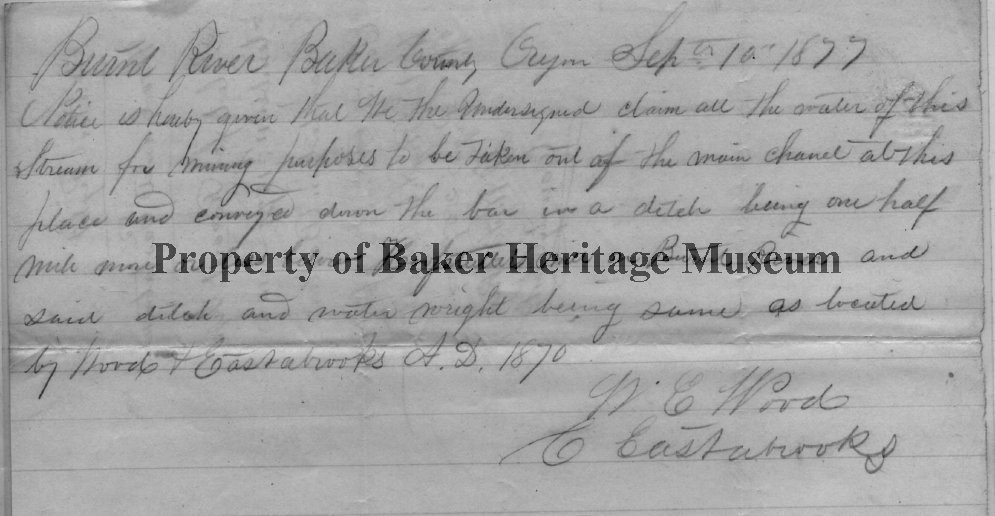 Burnt River Baker County Oregon Sept 10th 1877
Notice is hereby given that We the Undersigned claim all the water of this
Stream for mining purposes to be taken out of the main chanel at this
place and conveyed down the bar in a ditch being one half
mile more or less and
Property of Baker Heritage Museum
said ditch and water wright being same as located
by Wood & Eastabrooks A.D. 1870
W E Wood
C Eastabrooks